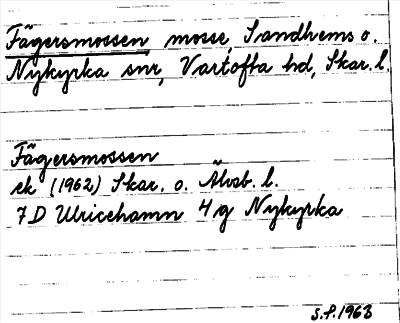 Fägersmossen, mosse, Sandhems o.
Nykyrka snr, Vartofta hd, Skar. l.
Fägersmossen
ek (1962) Skar. o. Älvsb. l.
7D Ulricehamn 4g Nykyrka
S.P. 1963